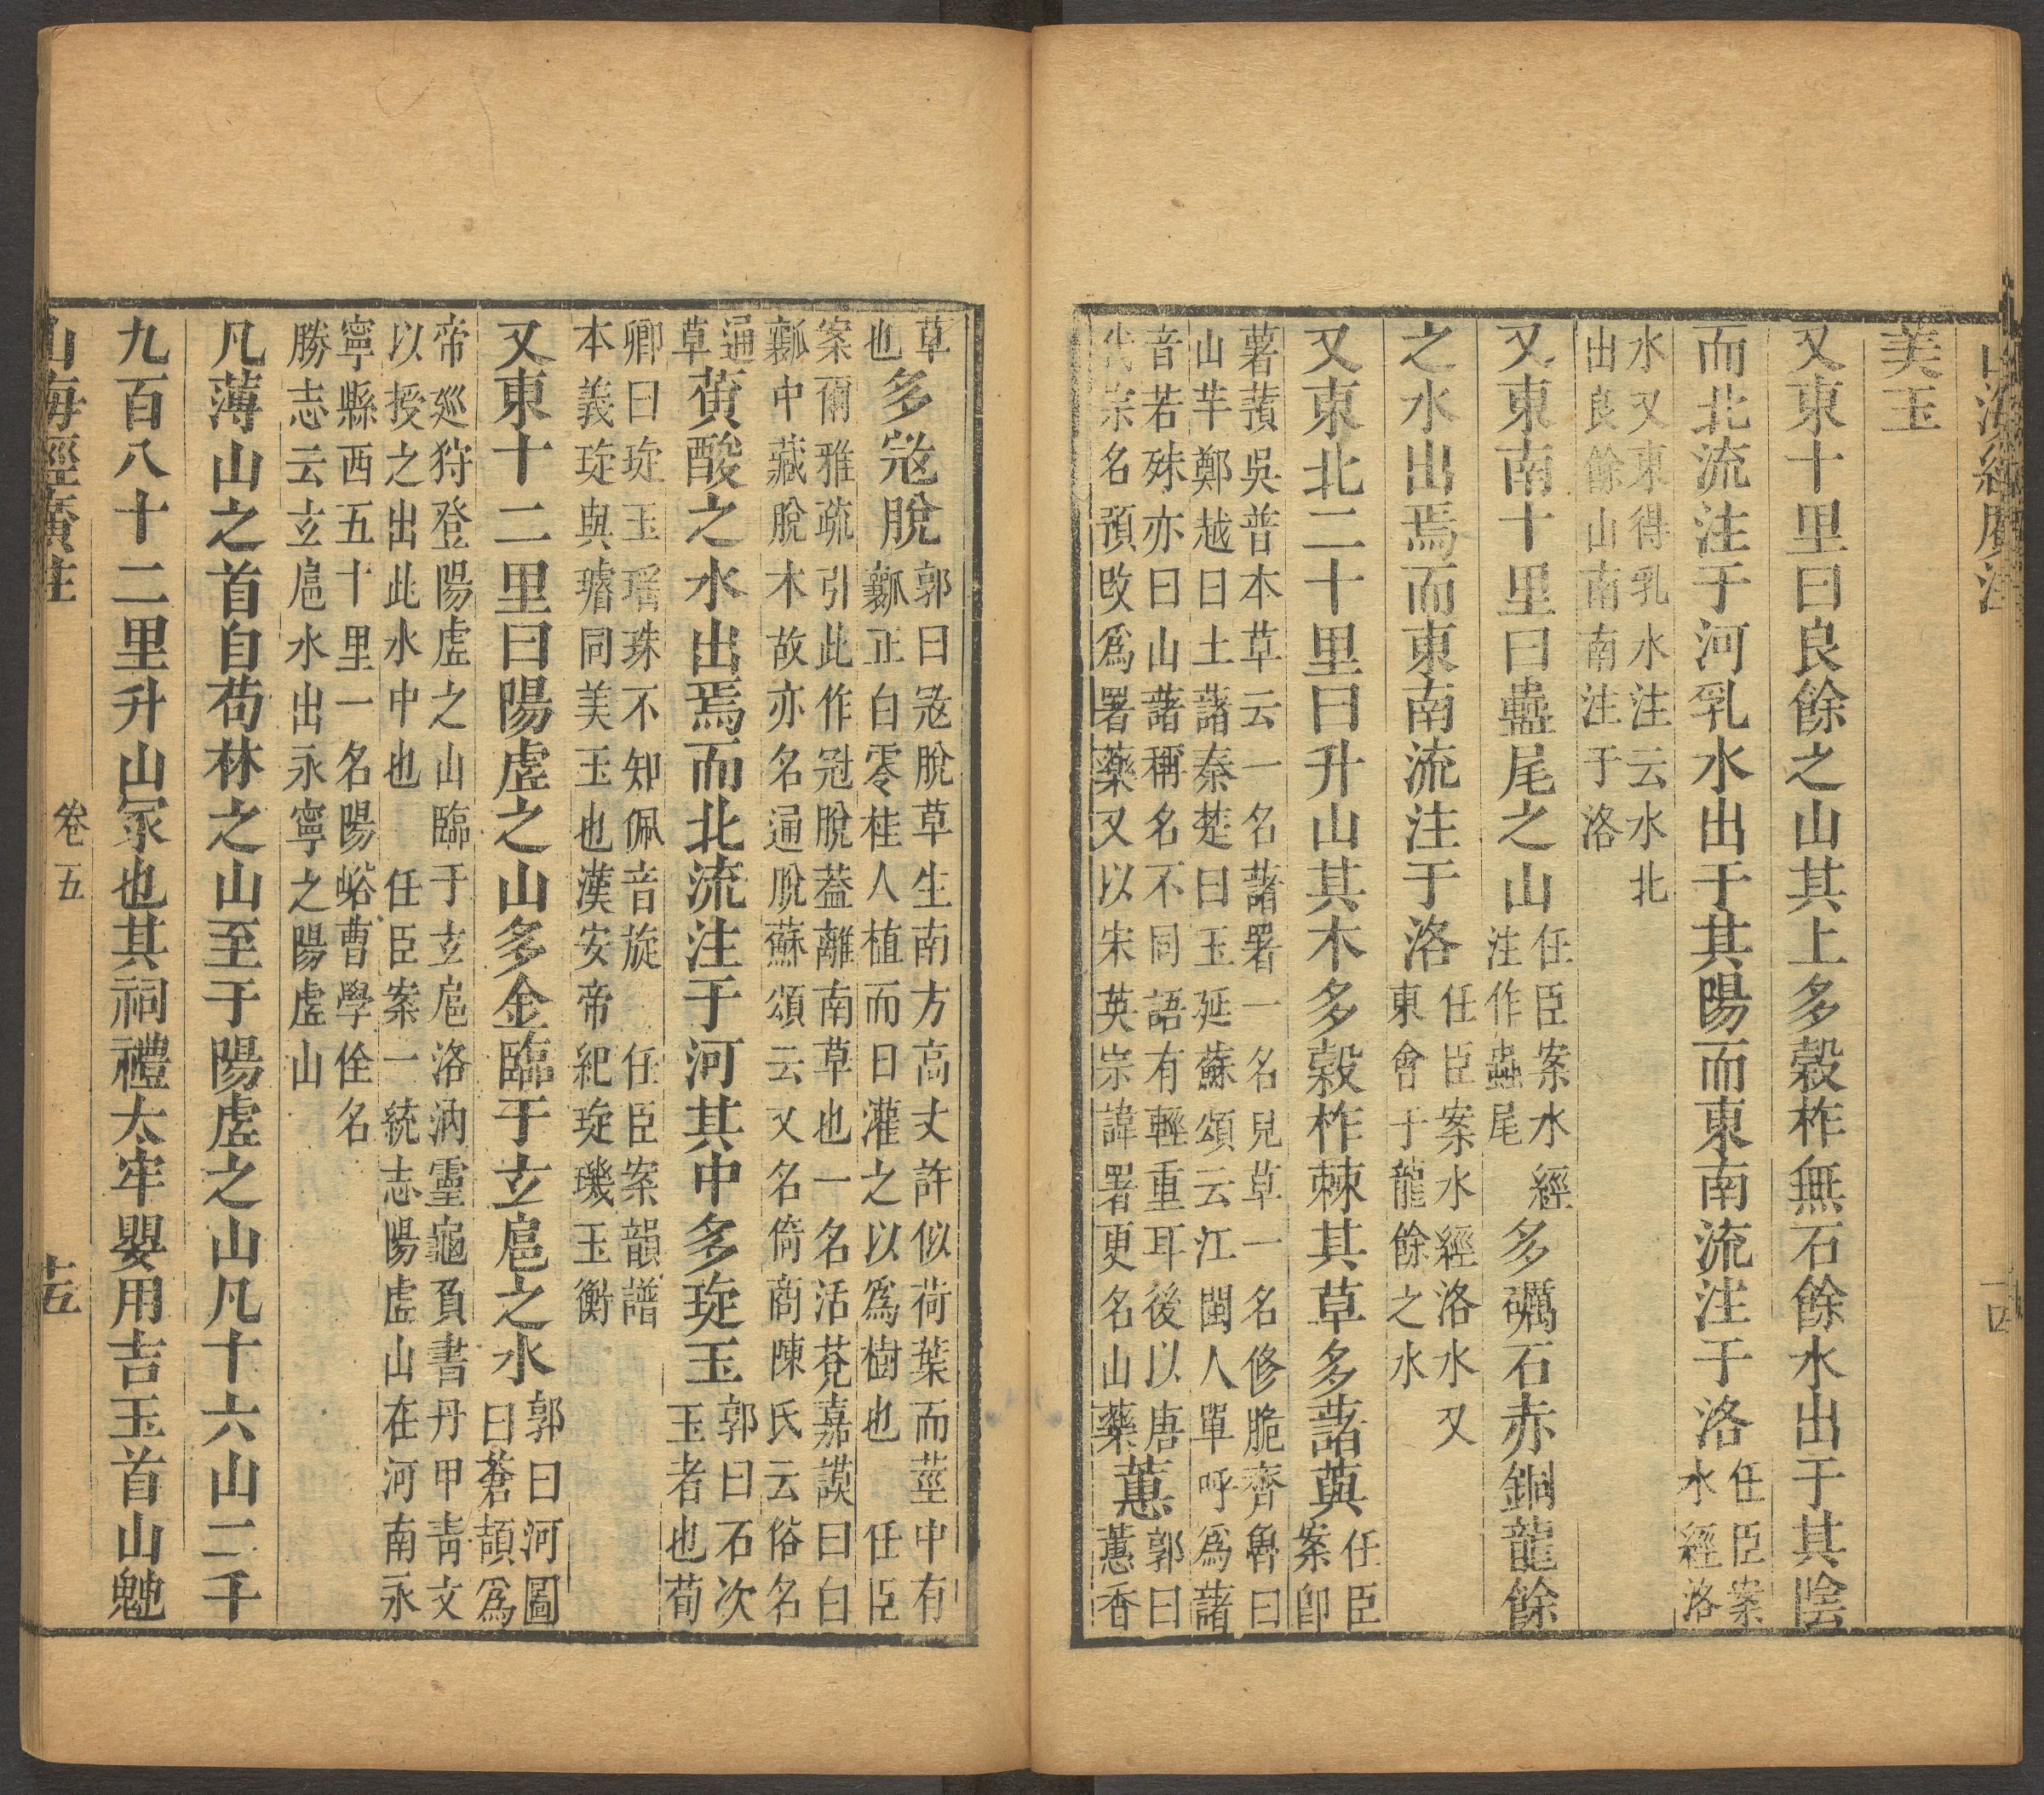 山海經廣注
美玉
又東十里曰良餘之山其上多榖柞無石餘水出于其陰
而北流注于河乳水出于其陽而東南流注于洛任臣案
水經洛
水又東得乳水注云水北
出良餘山南南注于洛
又東南十里曰蠱尾之山任臣案水經
注作蟲尾多礪石赤銅龍餘
之水出焉而東南流注于洛任臣案水經洛水又
東會于龍餘之水
又東北二十里曰升山其木多榖柞棘其草多藷藇任臣
案卽
薯蕷吳普本草云一名藷署一名兒草一名修脆齊魯曰
山芋鄭越曰土藷秦楚曰玉延蘇頌云江閩人單呼爲藷
音若殊亦曰山藷稱名不同語有輕重耳後以唐
代宗名預改爲署藥又以宋英宗諱署更名山藥蕙郭曰
蕙香
草
也多寇脫郭曰寇脫草生南方高丈許似荷葉而莖中有
瓤正白零桂人植而日灌之以爲樹也 任臣
案爾雅疏引此作冠脫蓋離南草也一名活莌嘉謨曰白
瓤中藏脫木故亦名通脫蘇頌云又名倚商陳氏云俗名
通
草黃酸之水出焉而北流注于河其中多琁玉郭曰石次
玉者也荀
卿曰琁玉瑶珠不知佩音旋 任臣案韻譜
本義琁與璿同美玉也漢安帝紀琁璣玉衡
又東十二里曰陽虛之山多金臨于玄扈之水郭曰河圖
曰蒼頡爲
帝廵狩登陽虛之山臨于玄扈洛汭靈龜負書丹甲靑文
以授之出此水中也 任臣案一統志陽虛山在河南永
寧縣西五十里一名陽峪曹學佺名
勝志云玄扈水出永寧之陽虛山
凡薄山之首自苟林之山至于陽虛之山凡十六山二千
九百八十二里升山冢也其祠禮太牢嬰用吉玉首山䰠
山海經廣注
卷五
十五